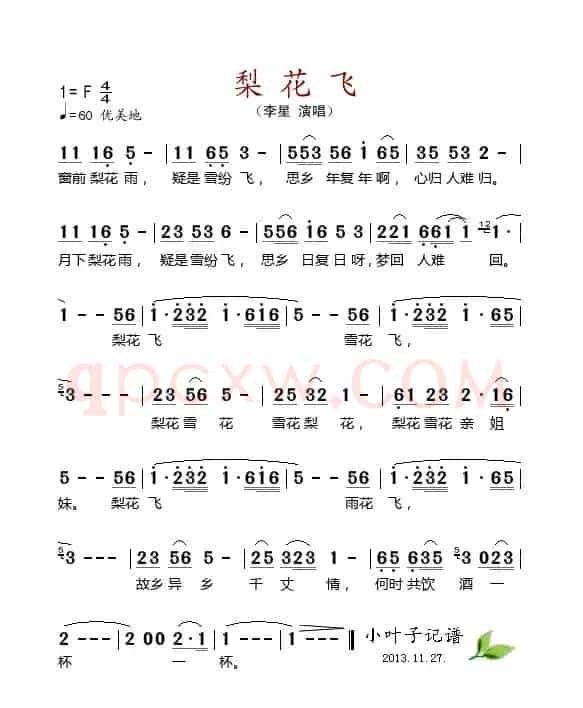 梨花飞
1= F 4/4
（李星 演唱）
♩=60 优美地
11 16 5 - | 11 65 3 - | 553 56 1 65 | 35 53 2 - |
窗前梨花雨， 疑是雪纷飞， 思乡 年复年啊， 心归人难归。
11 16 5 - | 23 53 6 - | 556 16 5 3 | 221 661 1 | 12 1 · |
月下梨花雨， 疑是雪纷飞， 思乡 日复日呀， 梦回 人难 回。
1 - - 56 | 1·232 1·616 | 5 - - 56 | 1·232 1·65 |
梨花飞 雪花飞，
5 3 - - - | 23 56 5 - | 23 32 1 - | 61 23 2·16 |
qpcxw.com
梨花雪 花 雪花梨 花， 梨花雪花亲 姐
5 - - 56 | 1·232 1·616 | 5 - - 56 | 1·232 1·65 |
妹。 梨花飞 雨花飞，
5 3 - - - | 23 56 5 - | 25 32 1 - | 65 635 5 3 023 |
故乡异 乡 千 丈 情， 何时共饮 酒 一
2 - - - | 2 00 2·1 | 1 - - - | 1 - - - ‖
小叶子记谱
杯 一 杯。
2013.11.27.